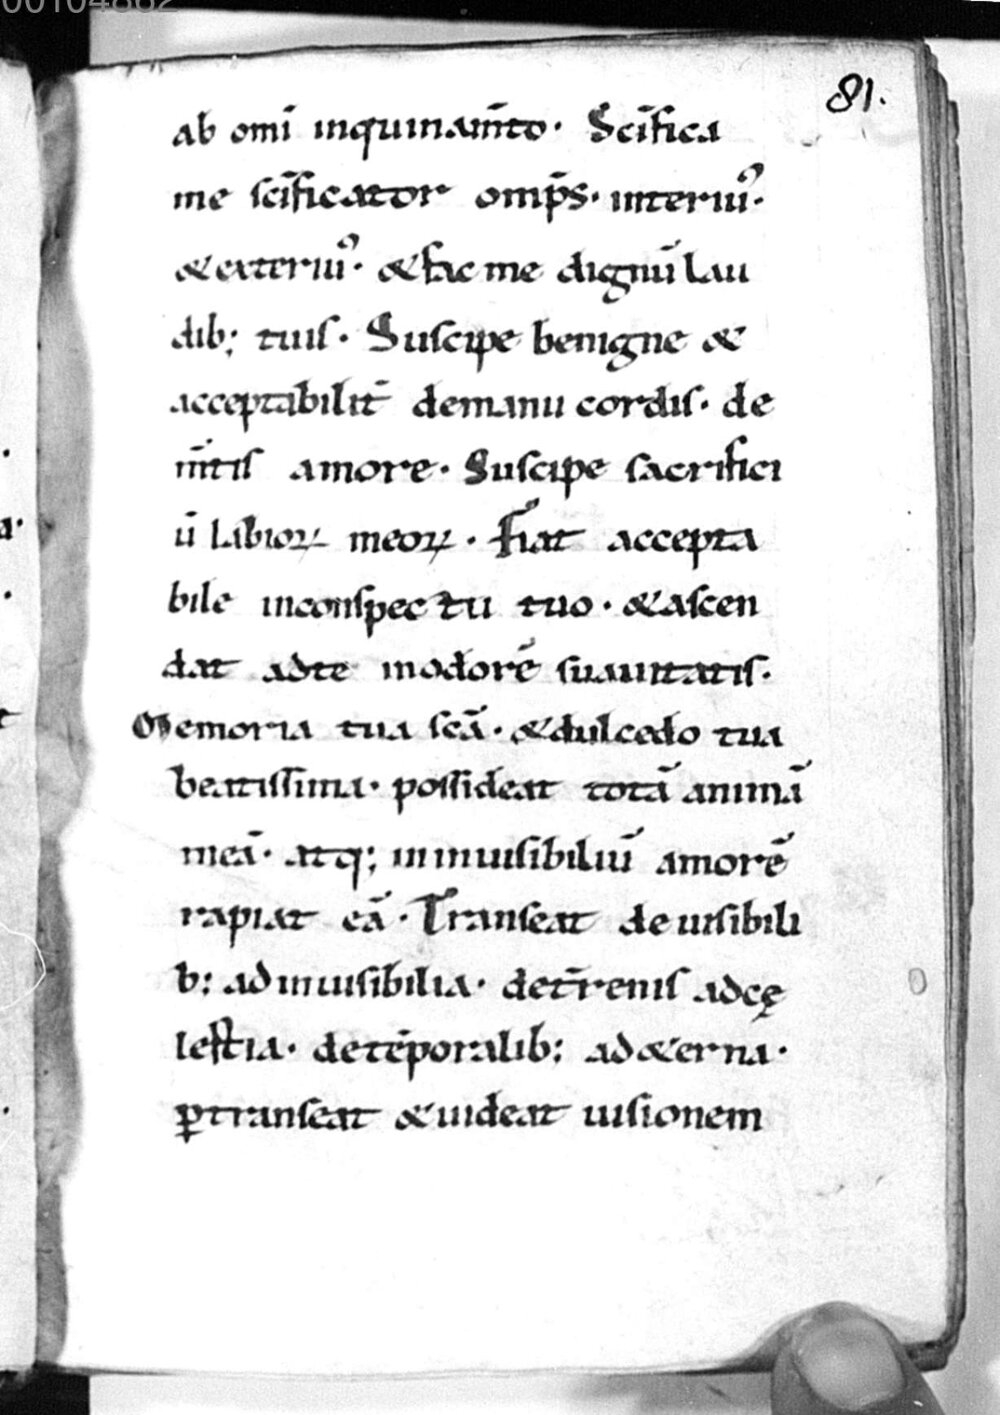 00104862
81.
ab omī inquinam̄to· Sc̄ifica
me sc̄ificator omp̄s· interiuꝰ·
& exteriuꝰ· & fac me dignū lau
dib; tuis· Suscipe benigne &
acceptabilit̄ de manu cordis· de
m̄tis amore· Suscipe sacrifici
ū labioꝝ meoꝝ· Fiat accepta
bile in conspectu tuo· & ascen
dat ad te in odorē suauitatis·
Memoria tua sc̄a· & dulcedo tua
beatissima· possideat totā animā
meā· atq; in inuisibiliū amorē
rapiat eā· Transeat de uisibili
b; ad inuisibilia· de t̄renis ad cę
lestia· de tēporalib; ad &erna·
ꝑtranseat & uideat uisionem